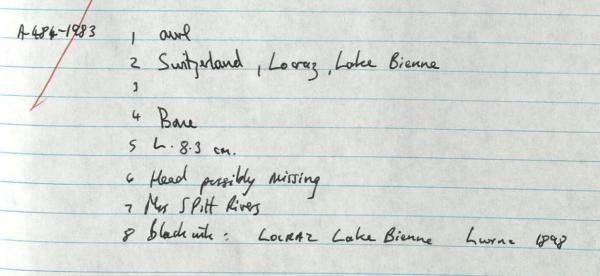 A-484-1983 1 awl
2 Switzerland, Locraz, Lake Bienne
3
4 Bone
5 L. 8.3 cm.
6 Head possibly missing
7 Mrs S Pitt Rivers
8 black ink: LOCRAZ Lake Bienne 1898